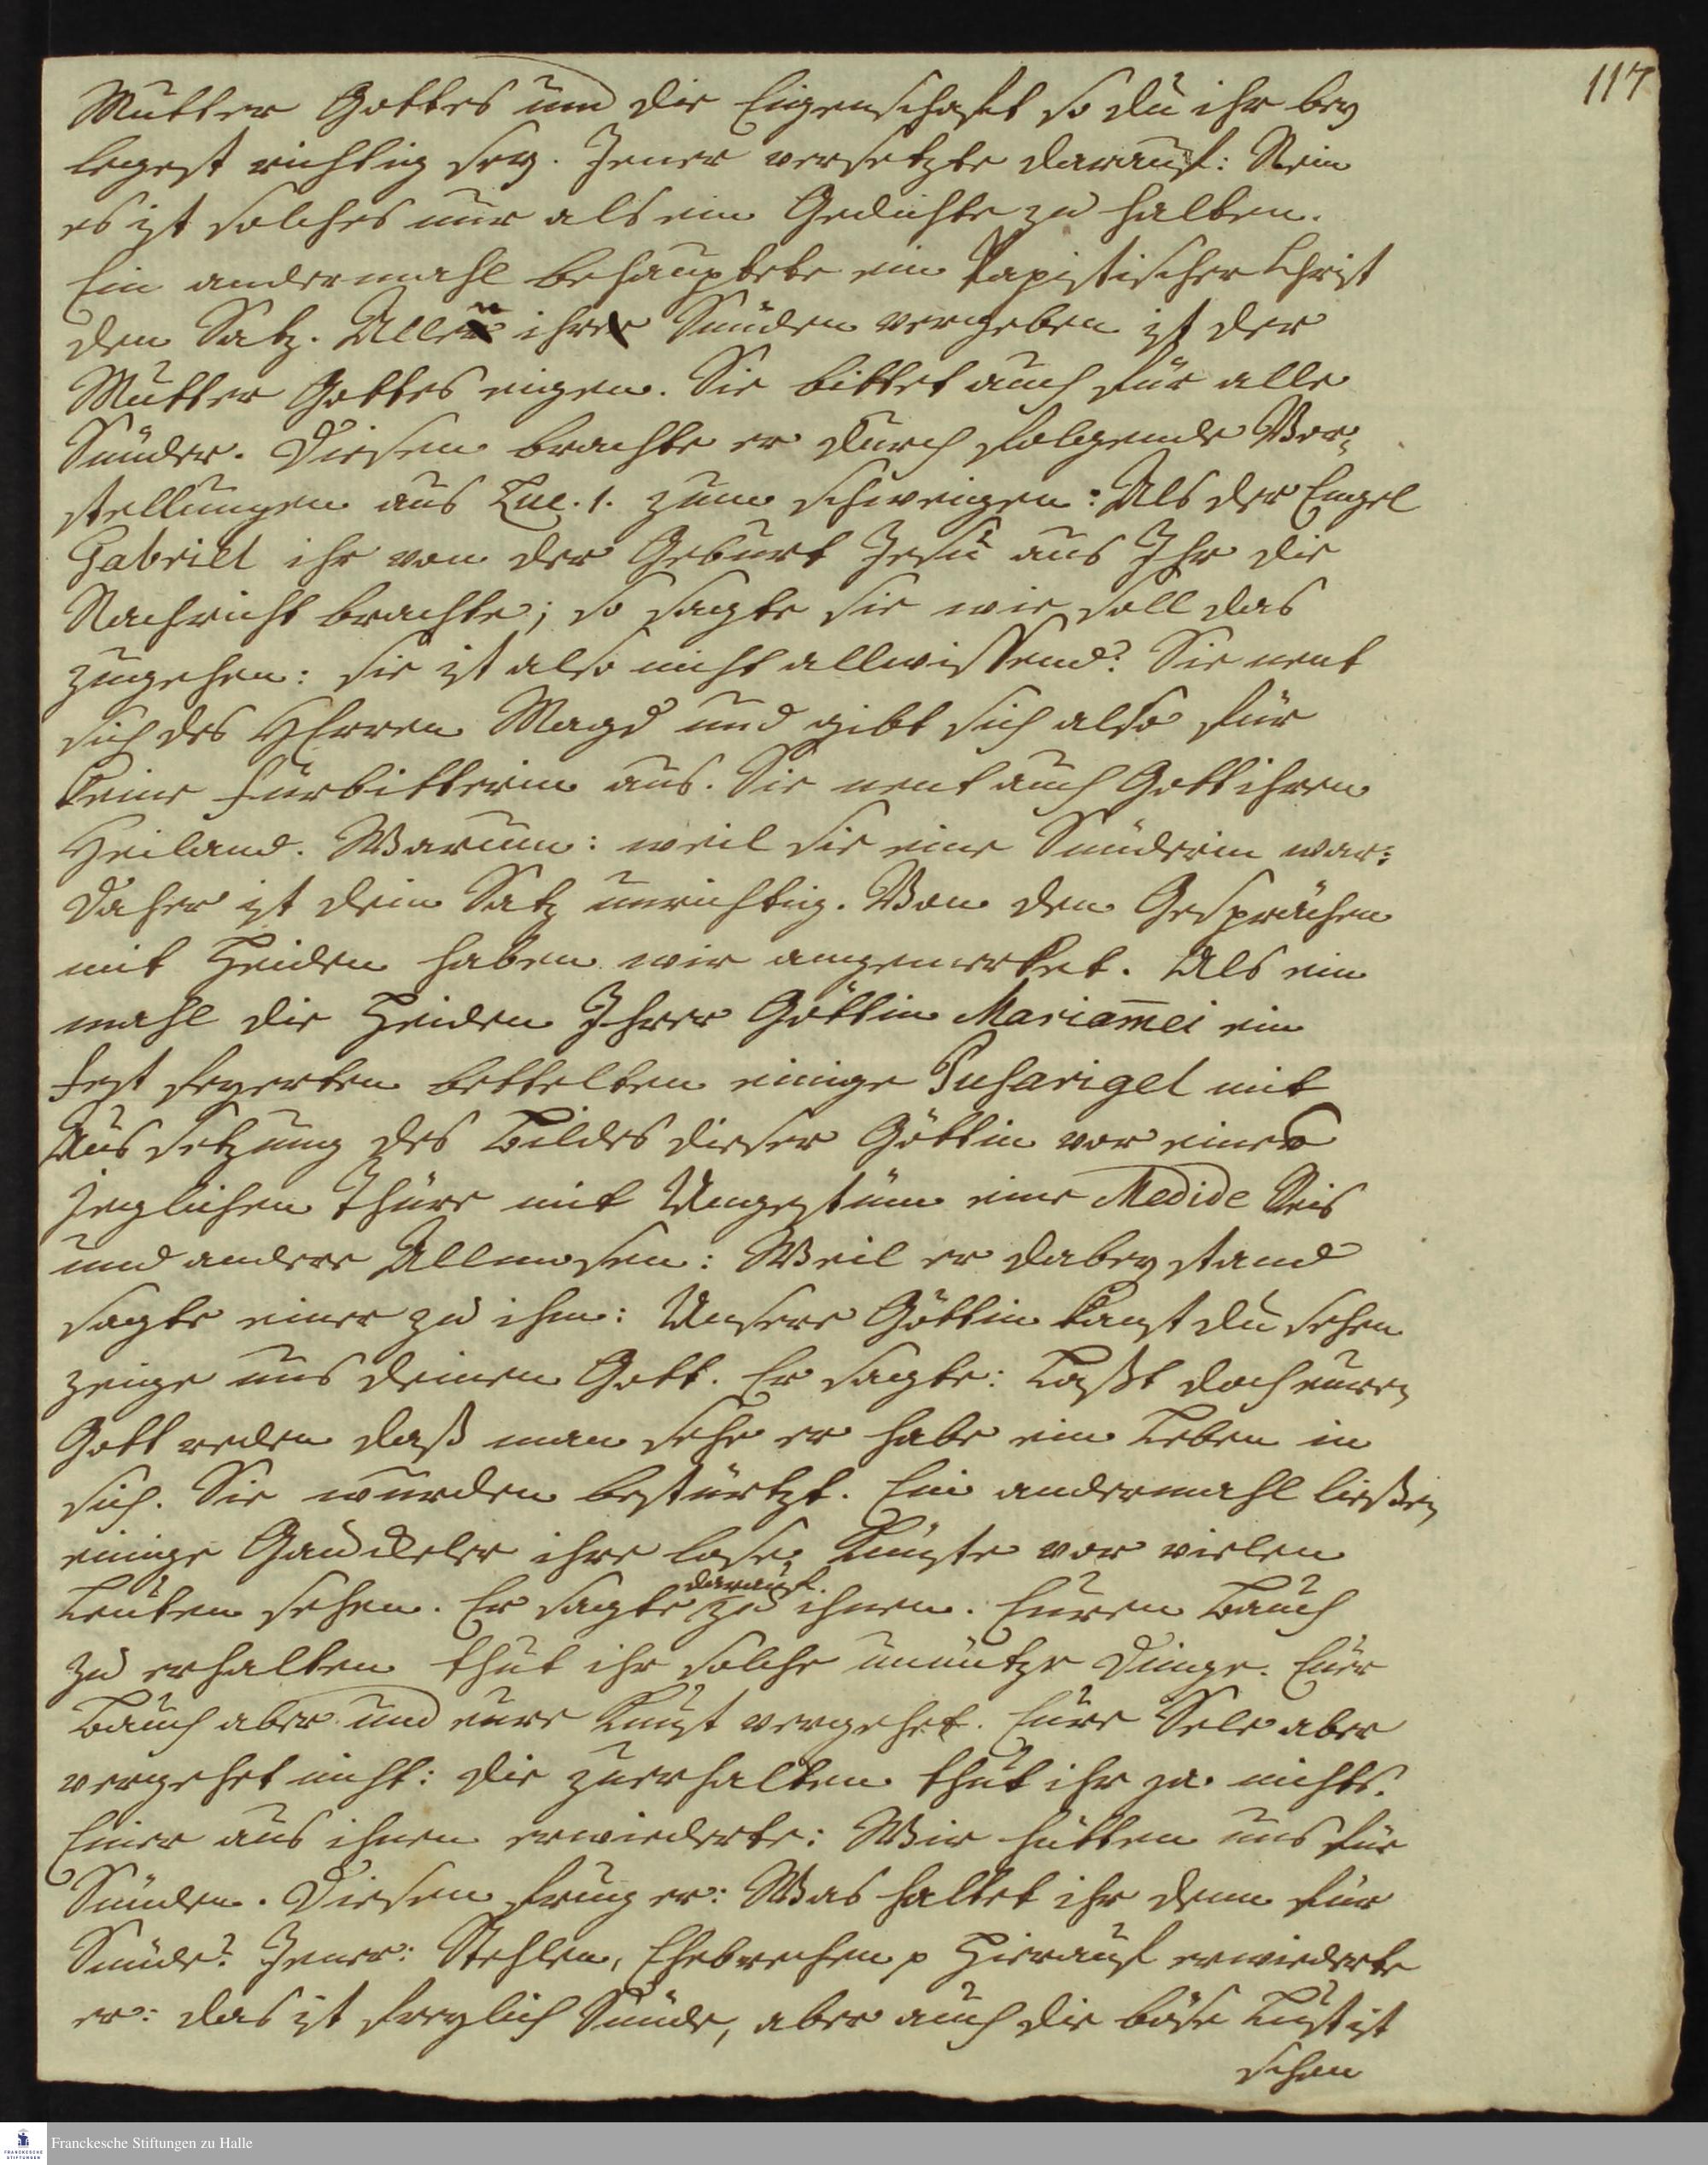 117
Mutter Gottes und die Eigenschafft so du ihr bey
legest richtig sey. Jener versetzte darauf: Nein
es ist solches nur als ein Gedichte zu halten.
Ein andermahl behauptete ein Papistischer Christ
den Satz. Allen ihre Sünden vergeben ist der
Mutter Gottes eigen. Sie bittet auch für alle
Sünder. Diesen brachte er durch folgende Vor-
stellungen aus Luc. 1. zum schweigen: Als der Engel
Gabriel ihr von der Geburt Jesu aus Ihr die
Nachricht brachte; so sagte sie wie soll das
zugehen: sie ist also nicht allwissend? Sie nent
sich des HErren Magd und gibt sich also für
keine Fürbitterin aus. Sie nent auch Gott ihren
Heiland. Warum: weil sie eine Sünderin war:
Daher ist dein Satz unrichtig. Von den Gesprächen
mit Heiden haben wir angemerket. Als ein
mahl die Heiden Ihrer Göttin Mariam̅ei ein
Fest feyerten bettelten einige Pusarigel mit
Aussetzung des Bildes dieser Göttin vor einer
jeglichen Thüre mit Ungestüm eine Medide Reis
und andere Allmosen: Weil er dabey stand
sagte einer zu ihm: Unsere Göttin kanst du sehen
zeige uns deinen Gott. Er sagte: Laßt doch euren
Gott reden daß man sehe er habe ein Leben in
sich. Sie wurden bestürtzt. Ein andermahl ließen
einige Gauckeler ihre lose Künste vor vielen
Leuten sehen. Er sagte darauf zu ihnen. Euren Bauch
zu erhalten thut ihr solche unnütze Dinge. Euer
Bauch aber und eure Kunst vergehet. Eure Sele aber
vergehet nicht: die zuerhalten thut ihr ja nichts.
Einer aus ihnen erwiederte: Wir hütten uns für
Sünden. Diesen frug er: Was haltet ihr denn für
Sünde? Jener: Stehlen, Ehebrechen p Hierauf erwiederte
er: das ist freylich Sünde, aber auch die böse Lust ist
schon
Franckesche Stiftungen zu Halle
FRANCKESCHE
STIFTUNGEN